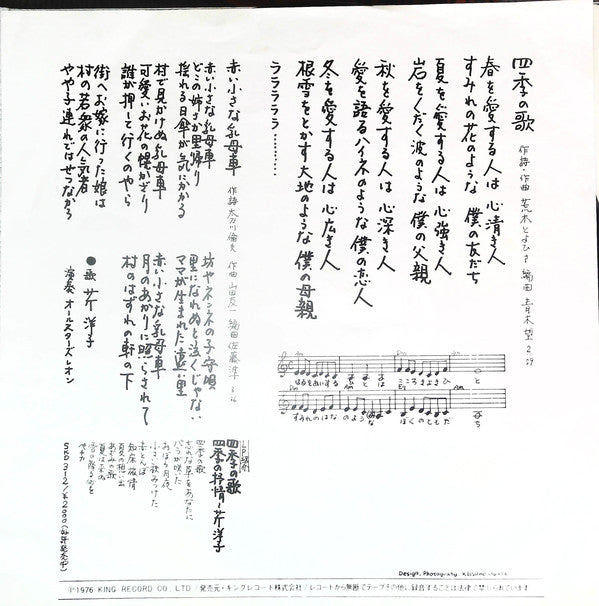 四季の歌
作詩・作曲 荒木とよひさ 編曲 青木望 2:59
春を愛する人は 心清き人
すみれの花のような 僕の友だち
夏を愛する人は 心強き人
岩をくだく波のような 僕の父親
秋を愛する人は 心深き人
愛を語るハイネのような 僕の恋人
冬を愛する人は 心広き人
根雪をとかす大地のような 僕の母親
ラララララ……
はるをあいする ひとは こころきよきひ と
すみれのはな のような ぼくのともだ ち
赤い小さな乳母車
作詩 太刀川倫夫 作曲 山田友一 編曲 佐藤準
赤い小さな乳母車
どこの姉さか里帰り
揺れる日傘が気にかかる
村で見かけぬ乳母車
可愛いお花の幌かざり
誰が押して行くのやら
街へお嫁に行った娘は
村の若衆の人気者
やや子連れではせつなかろ
坊やネンネの子守唄
里になれぬと泣くじゃない
ママが生まれた遠い里
赤い小さな乳母車
月のあかりに照らされて
村のはずれの軒の下
●歌 芹洋子
演奏 オールスターズ・レオン
LP紹介
四季の歌
四季の抒情〜芹洋子
四季の歌
忘れな草をあなたに
バラが咲いた
おぼろ月夜
小さい秋みつけた
赤とんぼ
知床旅情
あざみの歌
夏の想い出
雪の降る街を
ペチカ
SKD312/¥2000(好評発売中)
Design, Photography
Ⓟ1976 KING RECORD CO., LTD/発売元・キングレコード株式会社/レコードから無断でテープその他に録音することは法律で禁じられています